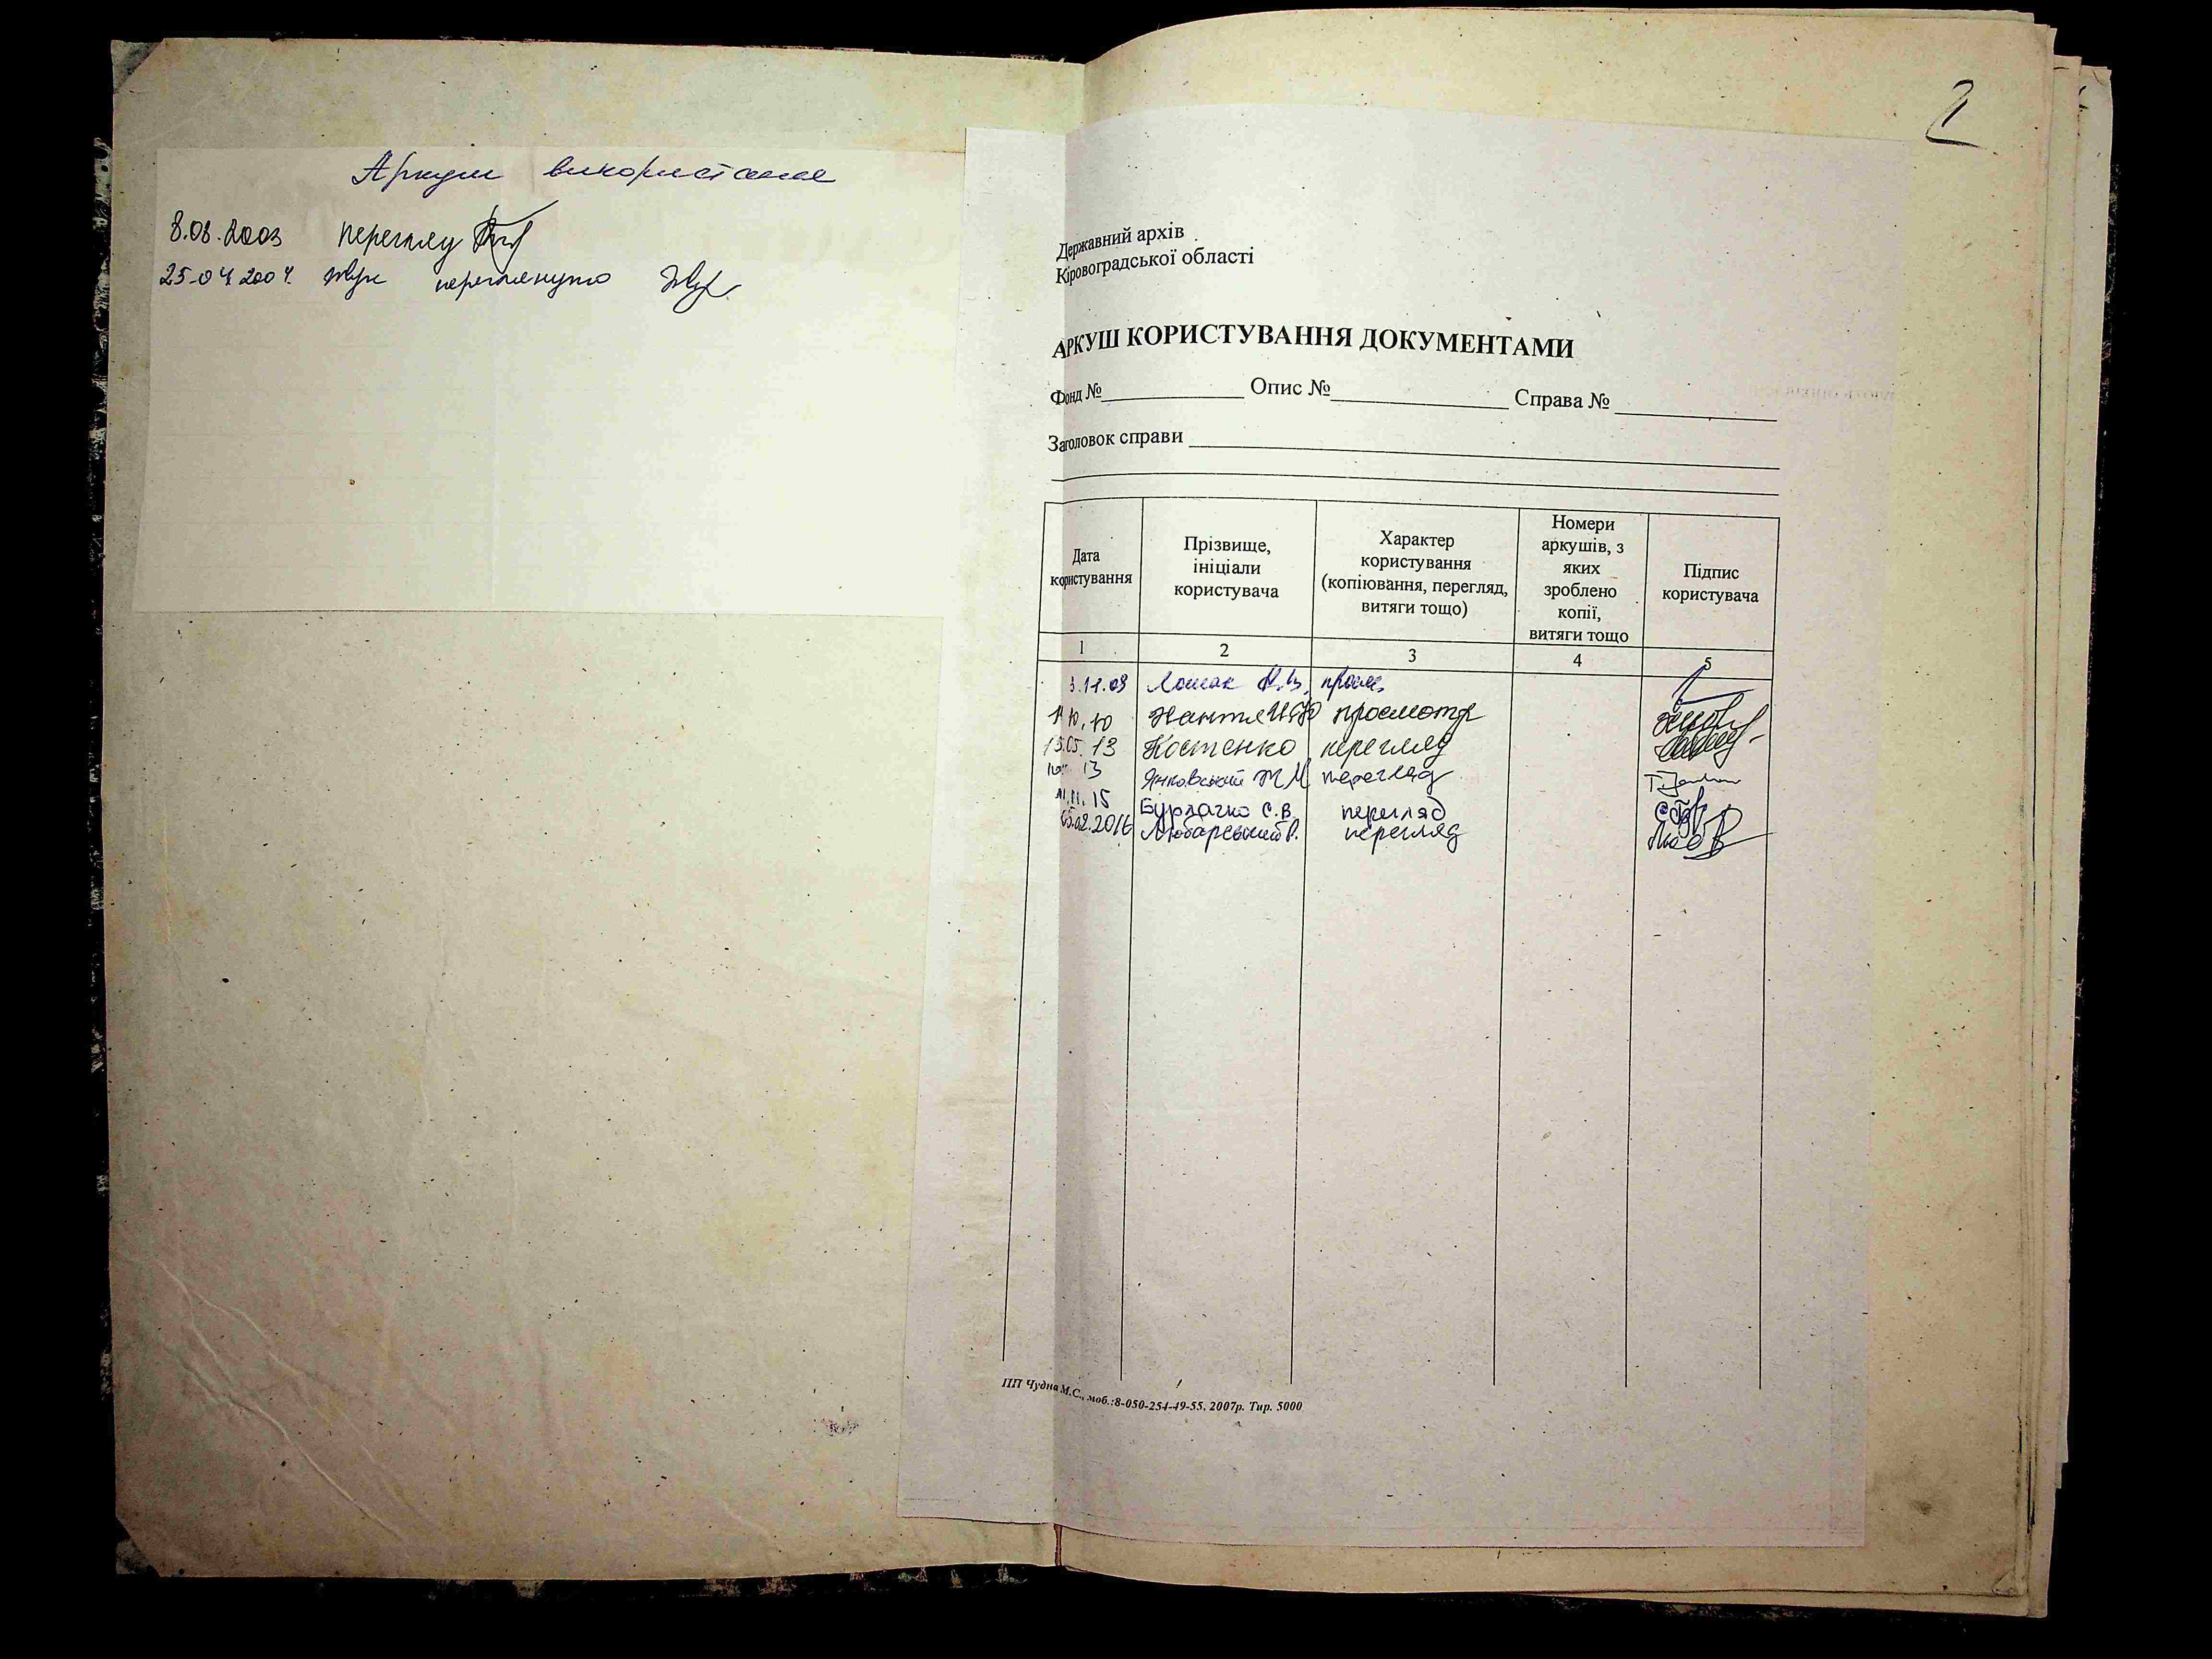 Аркуш використання
8.08.2003 перегляд
25.04.2004. Жук переглянуто
Державний архів
Кіровоградської області
АРКУШ КОРИСТУВАННЯ ДОКУМЕНТАМИ
Фонд № Опис № Справа №
Заголовок справи
Дата користування
Прізвище, ініціали користувача
Характер користування (копіювання, перегляд, витяги тощо)
Номери аркушів, з яких зроблено копії, витяги тощо
Підпис користувача
1 2 3 4 5
3.11.09
10.10 просмотр
15.05.13 Костенко перегляд
13 Янковський перегляд
11.11.15 Бурлачко С.В. перегляд
05.02.2016 Любарський Р. перегляд
ПП Чудна М.С., моб.:8-050-254-49-55. 2007р. Тир. 5000